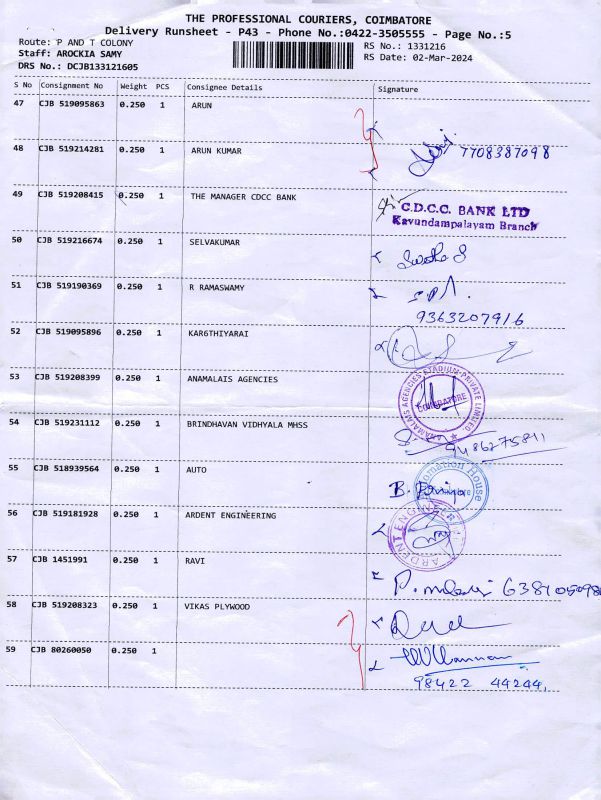 THE PROFESSIONAL COURIERS, COIMBATORE
Delivery Runsheet - P43 - Phone No.:0422-3505555 - Page No.:5
Route: P AND T COLONY
RS No.: 1331216
Staff: AROCKIA SAMY
RS Date: 02-Mar-2024
DRS No.: DCJB133121605
S No Consignment No Weight PCS Consignee Details Signature
47 CJB 519095863 0.250 1 ARUN
48 CJB 519214281 0.250 1 ARUN KUMAR 7708387098
49 CJB 519208415 0.250 1 THE MANAGER CDCC BANK C.D.C.C. BANK LTD
Kavundampalayam Branch
50 CJB 519216674 0.250 1 SELVAKUMAR
51 CJB 519190369 0.250 1 R RAMASWAMY
9363207916
52 CJB 519095896 0.250 1 KAR6THIYARAI
53 CJB 519208399 0.250 1 ANAMALAIS AGENCIES ANAMALAIS AGENCIES STADIUM PRIVATE LIMITED. COIMBATORE
54 CJB 519231112 0.250 1 BRINDHAVAN VIDHYALA MHSS
9486275811
55 CJB 518939564 0.250 1 AUTO B.
56 CJB 519181928 0.250 1 ARDENT ENGINEERING ARDENT
57 CJB 1451991 0.250 1 RAVI
58 CJB 519208323 0.250 1 VIKAS PLYWOOD
59 CJB 80260050 0.250 1
98422 44244.